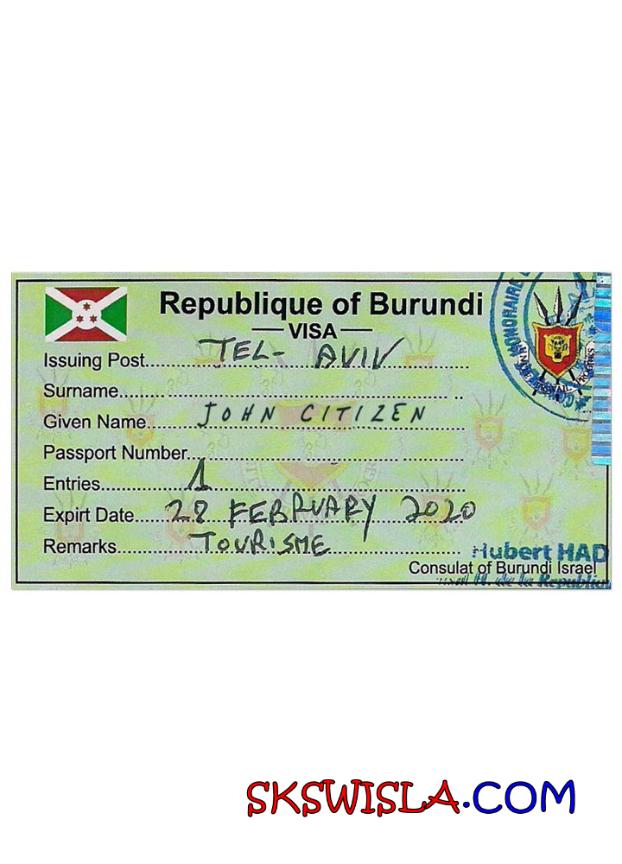 Republique of Burundi
VISA
Issuing Post........TEL-AVIV
Surname
Given Name....JOHN CITIZEN
Passport Number
Entries........1
Expirt Date....28 FEBRUARY 2020
Remarks........TOURISME
HONORAIRE
Hubert HAD
Consulat of Burundi Israel
de la Republiq
SKSWISLA.COM